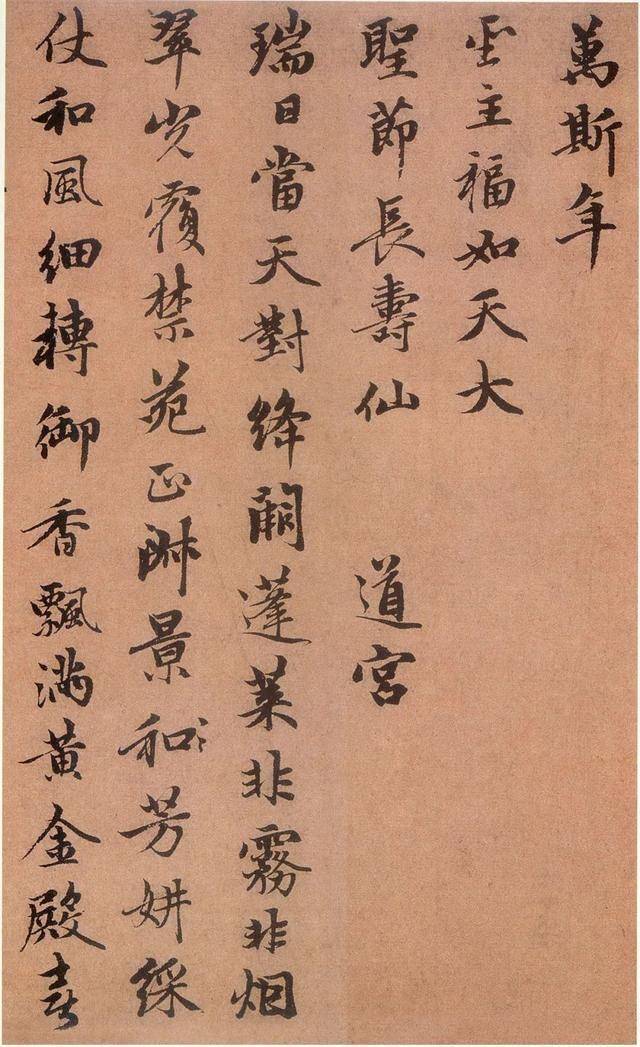 萬斯年
主福如天大
聖節長壽仙 道宮
瑞日當天對絳闕蓬萊非霧非烟
翠光覆禁苑正淑景和芳妍綵
仗和風細轉御香飄滿黃金殿喜